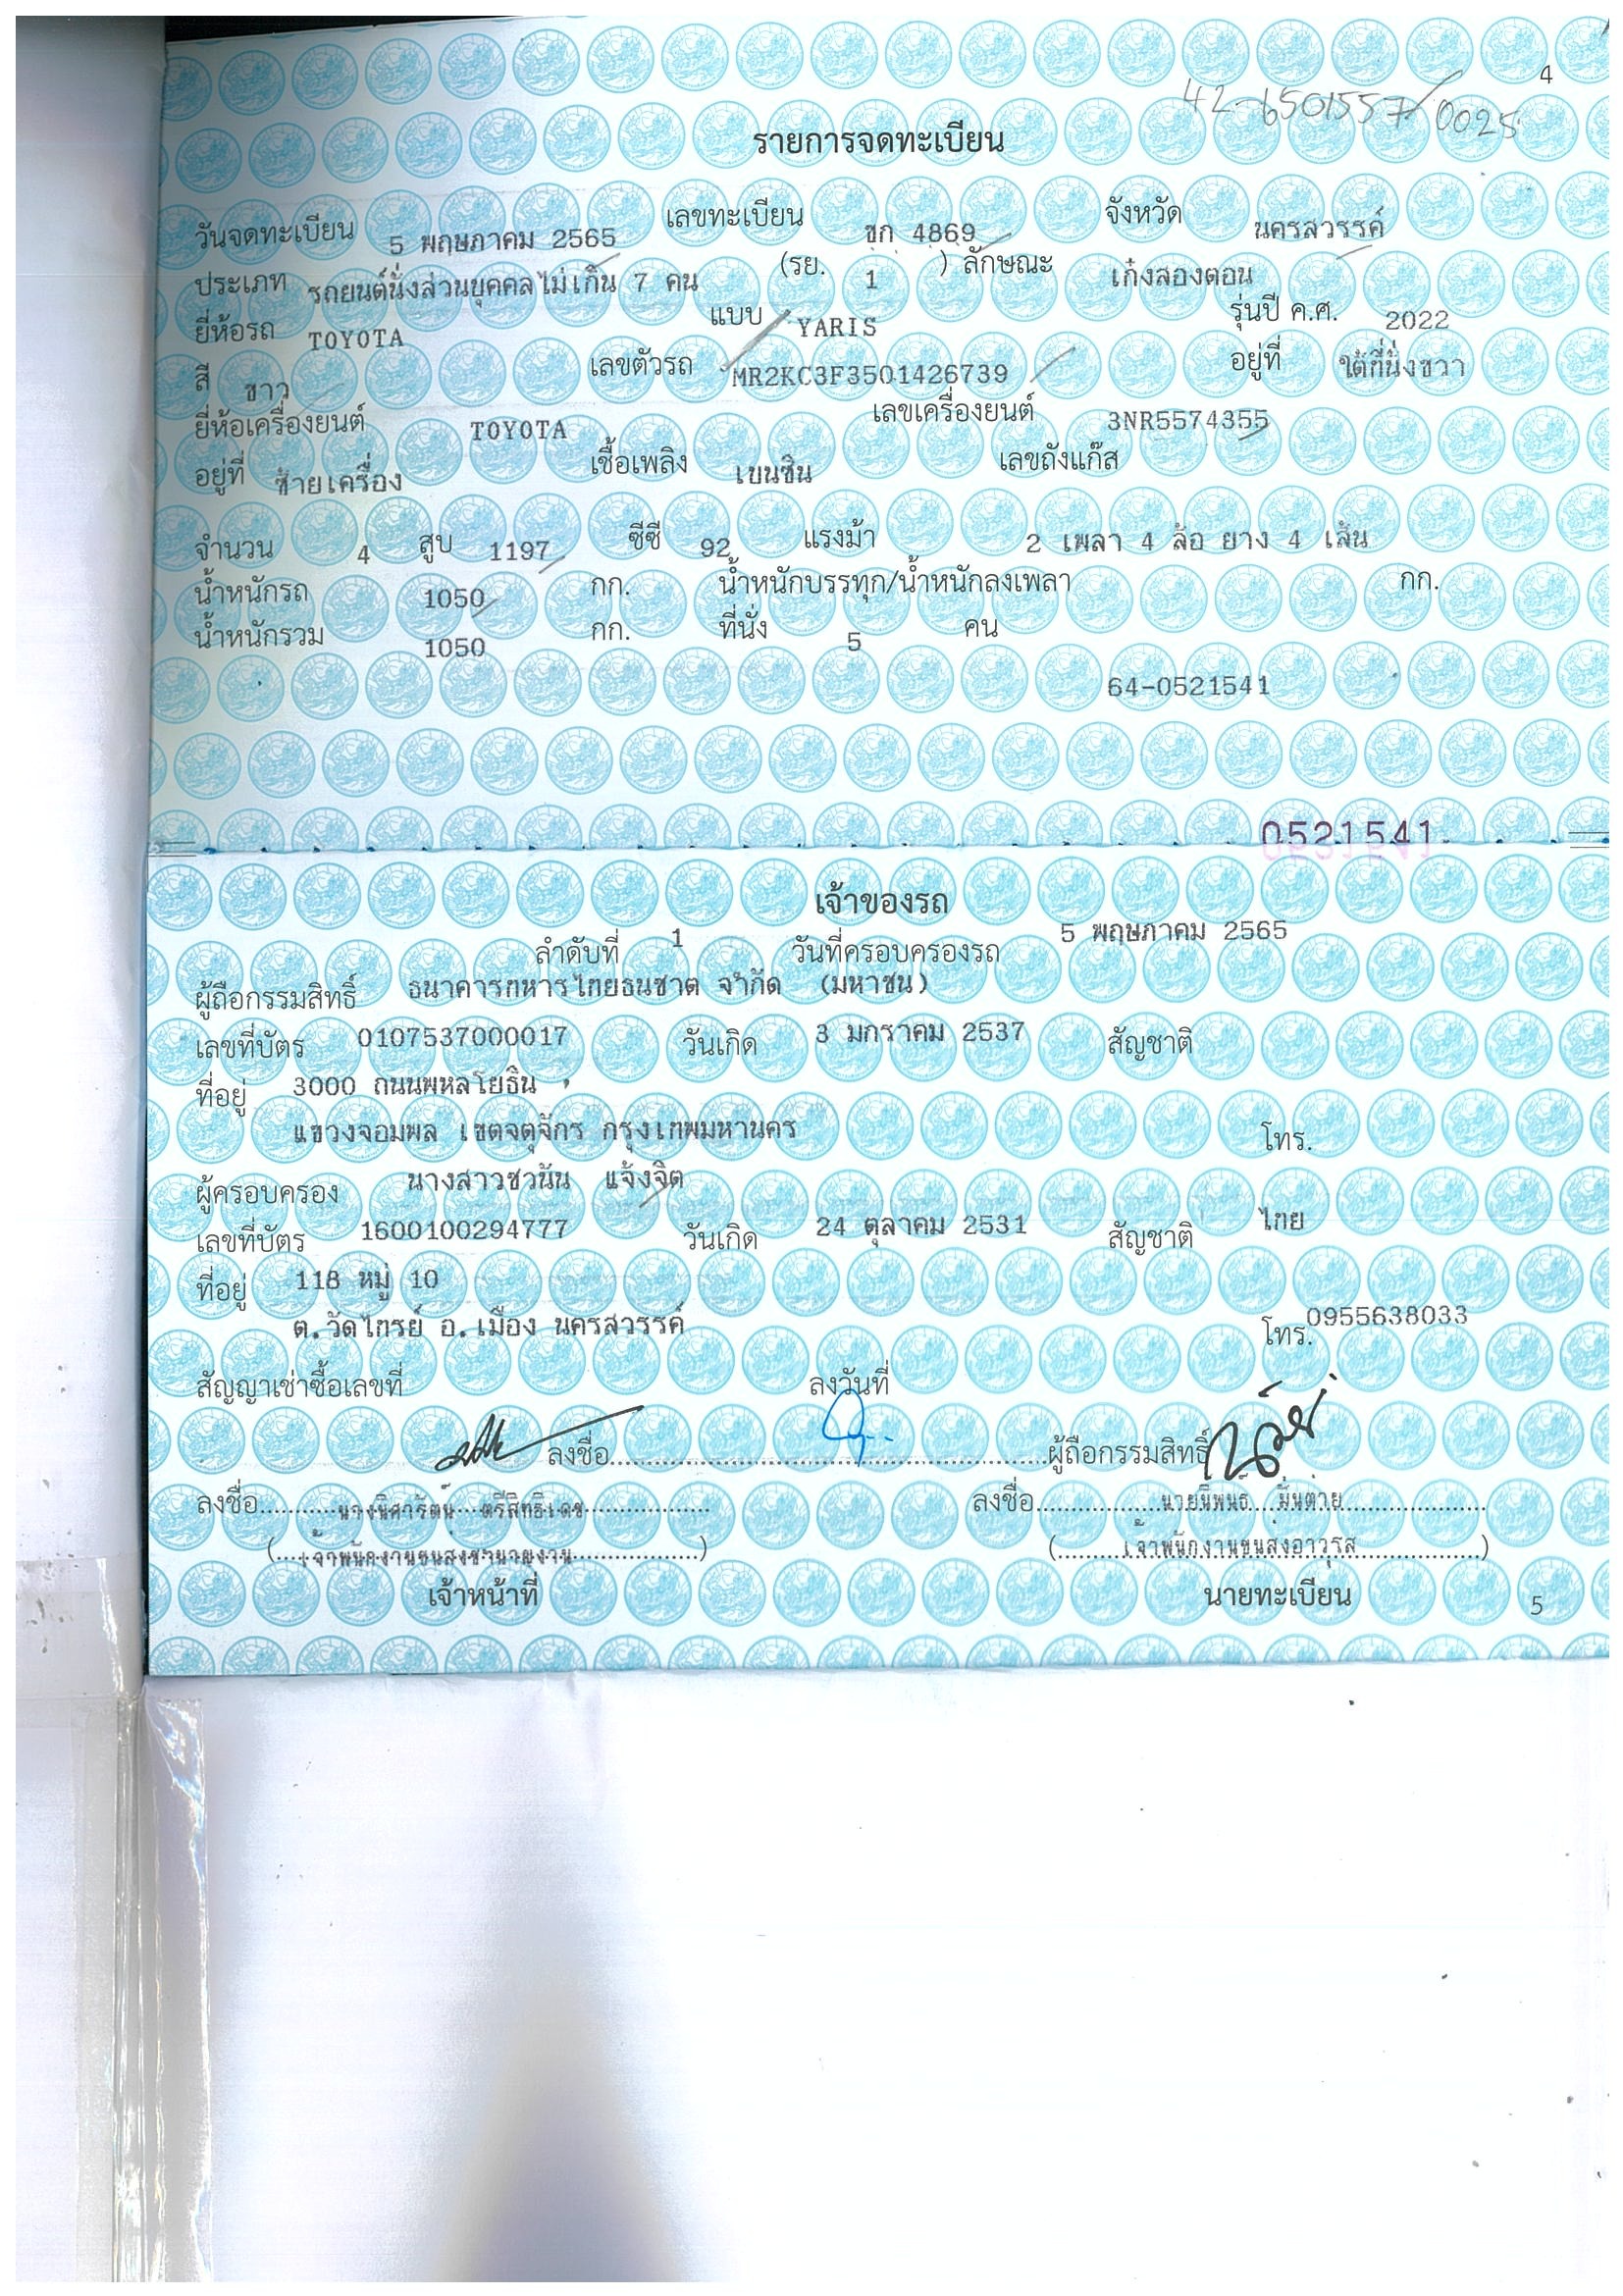 4
42-6501557/0025
รายการจดทะเบียน
วันจดทะเบียน 5 พฤษภาคม 2565 เลขทะเบียน ขก 4869 จังหวัด นครสวรรค์
ประเภท รถยนต์นั่งส่วนบุคคลไม่เกิน 7 คน (รย. 1 ) ลักษณะ เก๋งสองตอน
ยี่ห้อรถ TOYOTA แบบ YARIS รุ่นปี ค.ศ. 2022
สี ขาว เลขตัวรถ MR2KC3F3501426739 อยู่ที่ ใต้ที่นั่งขวา
ยี่ห้อเครื่องยนต์ TOYOTA เลขเครื่องยนต์ 3NR5574355
อยู่ที่ ซ้ายเครื่อง เชื้อเพลิง เบนซิน เลขถังแก๊ส
จำนวน 4 สูบ 1197 ซีซี 92 แรงม้า 2 เพลา 4 ล้อ ยาง 4 เส้น
น้ำหนักรถ 1050 กก. น้ำหนักบรรทุก/น้ำหนักลงเพลา กก.
น้ำหนักรวม 1050 กก. ที่นั่ง 5 คน
64-0521541
0521541
เจ้าของรถ
ลำดับที่ 1 วันที่ครอบครองรถ 5 พฤษภาคม 2565
ผู้ถือกรรมสิทธิ์ ธนาคารทหารไทยธนชาต จำกัด (มหาชน)
เลขที่บัตร 0107537000017 วันเกิด 3 มกราคม 2537 สัญชาติ
ที่อยู่ 3000 ถนนพหลโยธิน
แขวงจอมพล เขตจตุจักร กรุงเทพมหานคร โทร.
ผู้ครอบครอง นางสาวชวนัน แจ้งจิต
เลขที่บัตร 1600100294777 วันเกิด 24 ตุลาคม 2531 สัญชาติ ไทย
ที่อยู่ 118 หมู่ 10
ต.วัดไทรย์ อ.เมือง นครสวรรค์ โทร.0955638033
สัญญาเช่าซื้อเลขที่ ลงวันที่
ลงชื่อ ผู้ถือกรรมสิทธิ์
ลงชื่อ นางนิศารัตน์ ตรีสิทธิเดช ลงชื่อ นายนิพนธ์ มั่นต่าย
(เจ้าพนักงานขนส่งชำนาญงาน) (เจ้าพนักงานขนส่งอาวุโส)
เจ้าหน้าที่ นายทะเบียน
5